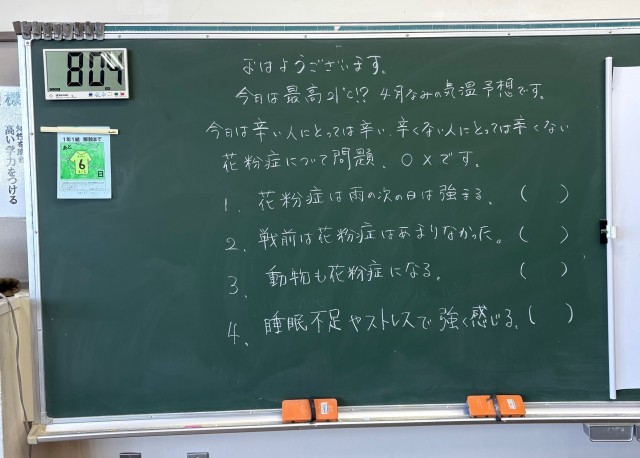 804
1年1組 解散まで
あと
6
日
高い学力をつける
おはようございます。
今日は最高21℃!? 4月なみの気温予想です。
今日は辛い人にとっては辛い、辛くない人にとっては辛くない
花粉症について問題、○×です。
1、花粉症は雨の次の日は強まる。( )
2、戦前は花粉症はあまりなかった。( )
3、動物も花粉症になる。( )
4、睡眠不足やストレスで強く感じる。( )